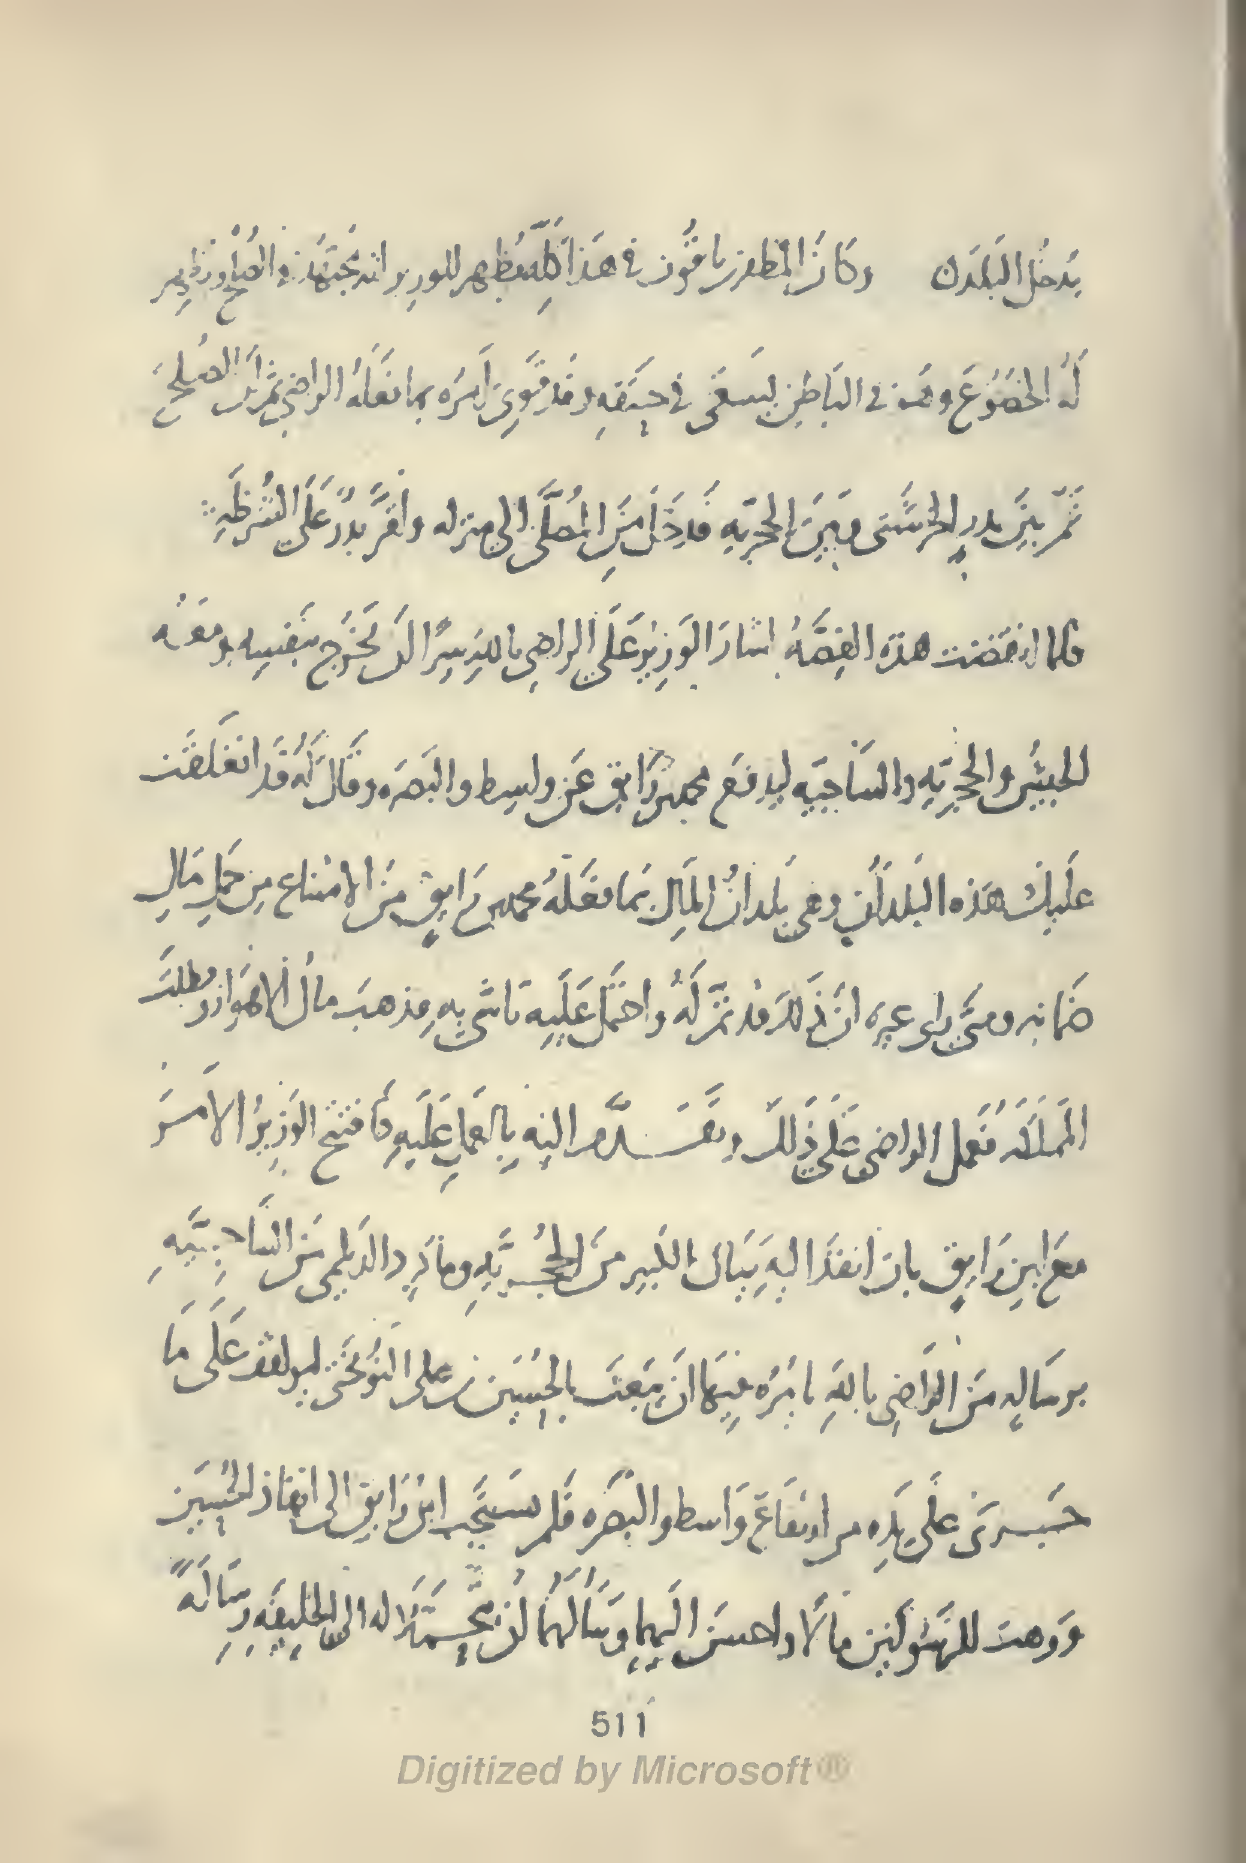 يدخل البلدان وكان المظفر بن ياقوت في هذا كله يظهر للوزير انه مجتهد في الصلح ويظهر
له الخضوع وهو في الباطن يسعى في حتفه وقد قوي امره بما فعله الراضي ثم ان الصلح
تم بين بدر الخرشنى وبين الحجريه فدخل من المصلى الى منزله واقر بدر على الشرطه
فلما انقضت هذه القصه اشار الوزير على الراضى بالله سرا ان يخرج بنفسه ومعه
الجيش والحجريه والساجيه ليدفع محمد بن رايق عن واسط والبصره وقال له قد انغلقت
عليك هذه البلدان وهى بلدان المال بما فعله محمد بن رايق من الامتناع من حمل مال
ضمانه ومتى راى غيره ان ذلك قد تم له واحتمل عليه تاسى به فذهب مال الاهواز وبطلت
المملكه فعمل الراضى على ذلك وتقدم اليه بالعمل عليه فافتتح الوزير الامر
مع ابن رايق بان انفذ اليه ينال الكبير من الحجريه وماكرد الديلمى من الساجيه
برساله من الراضى بالله يامره فيها ان يبعث بالحسين بن على النوبختى ليواقف على ما
جرى على يده من ارتفاع واسط والبصره فلم يستجب ابن رايق الى انفاذ الحسين
ووهب للرسولين مالا واحسن اليهما وسالهما ان يتحملا له الى الخليفه رساله
511
Digitized by Microsoft®